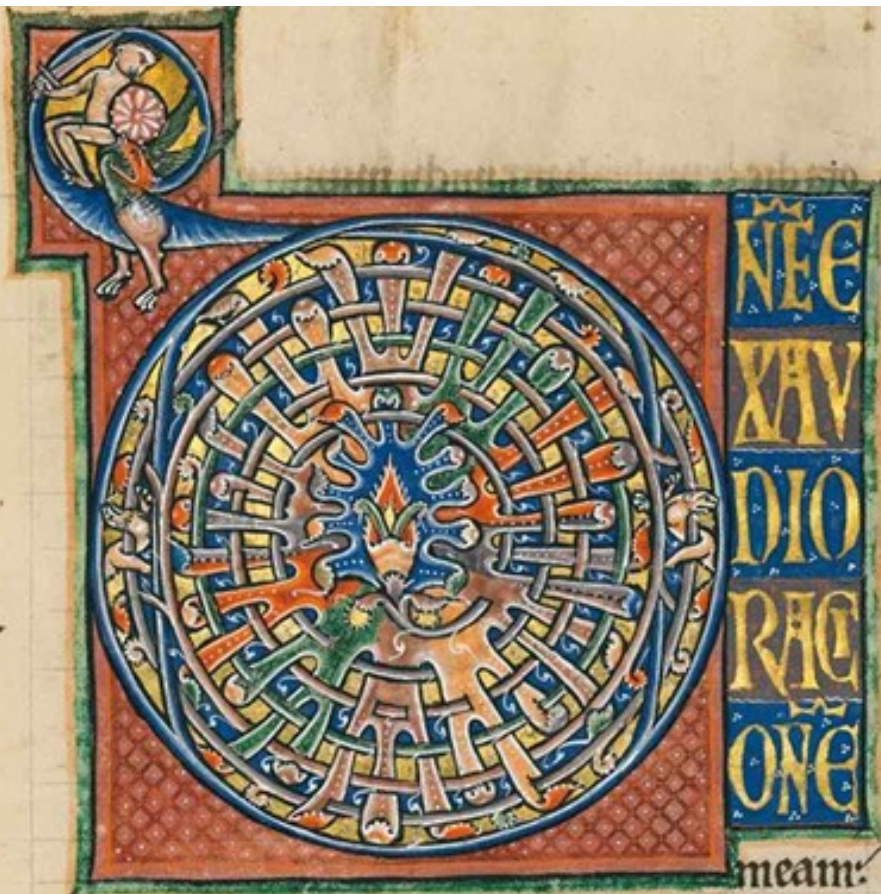 DN̄EE
XAV
DIO
RACI
ONĒ
meam: